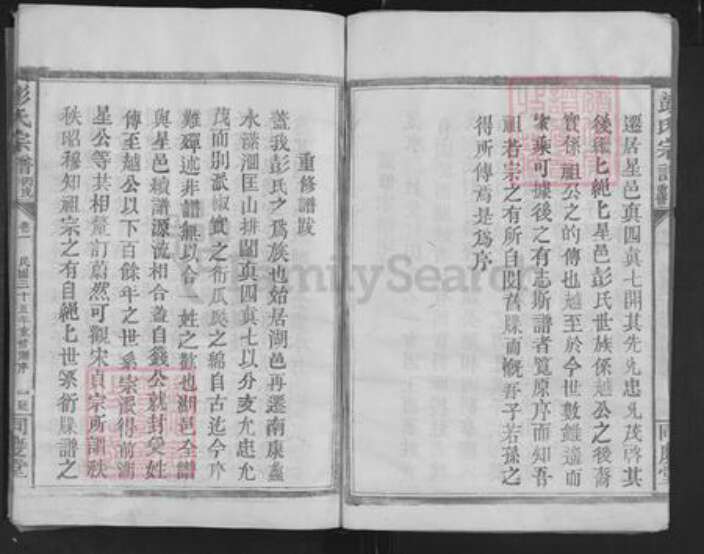 遷居星邑真四真七開其先允忠允茂啓其
後繩繩星邑彭氏世族係越公之後裔
實係祖公之的傳也越至於今世數雖遠而
家乘可據後之有志斯譜者覽原序而知吾
祖若宗之有所自閱舊牒而慨吾子若孫之
得所傳焉是為序
重修譜跋
蓋我彭氏之為族也始居湖邑再遷南康蠡
水瀠洄匡山排闥真四真七以分支允忠允
茂而別派椒實之衍瓜瓞之綿自古迄今序
難殫述非譜無以合一姓之歡也湖邑全譜
與星邑續譜源流相合蓋自錢公就封受姓
傳至越公以下百餘年之世系宗派得前湖
星公等共相釐訂蔚然可觀宋真宗所謂秩
秩昭穆知祖宗之有自繩繩世系衍牒譜之
彭氏宗譜
卷一
民國三十五年重修湖序
同慶堂
彭氏宗譜
同慶堂
FamilySearch